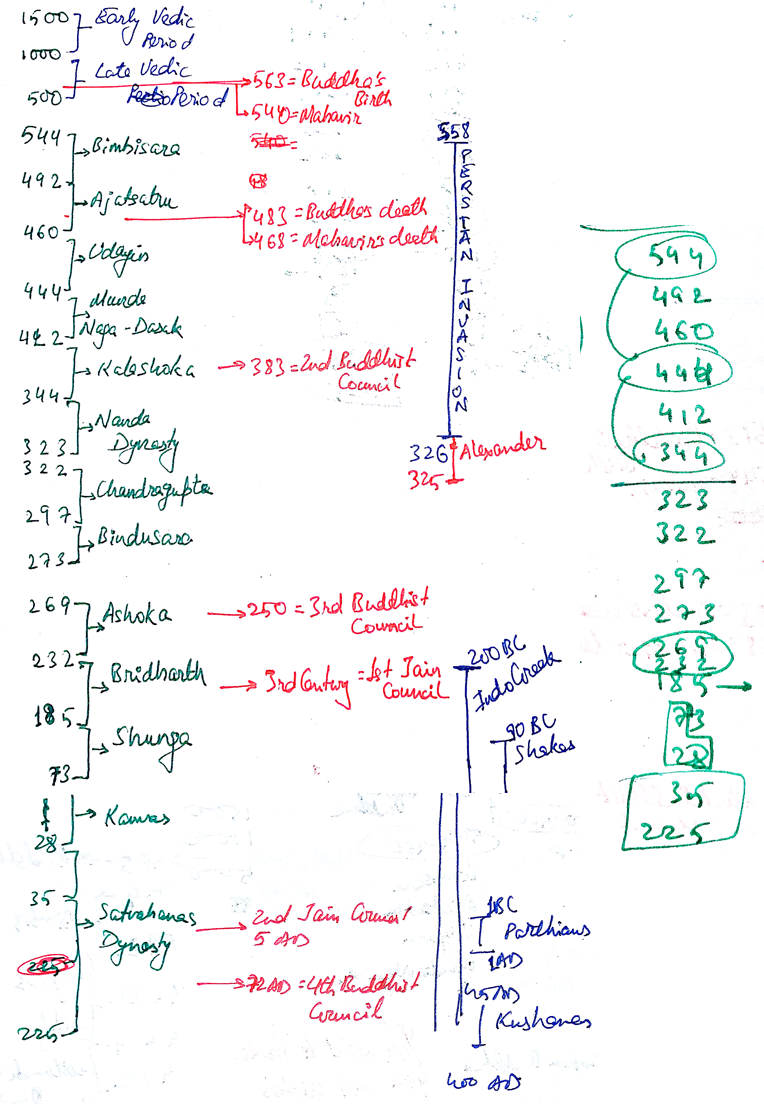 1500
Early Vedic
Period
1000
Late Vedic
Period
500
563 = Buddha's
Birth
540 = Mahavir
544
Bimbisara
492
Ajatsatru
460
483 = Buddha's death
468 = Mahavir's death
Udayin
444
Munda
Naga-Dasak
412
Kalashoka
383 = 2nd Buddhist
Council
344
Nanda
Dynasty
323
322
Chandragupta
297
Bindusara
273
269
Ashoka
250 = 3rd Buddhist
Council
232
Bridharth
3rd Century = 1st Jain
Council
185
Shunga
73
Kanvas
28
35
Satvahanas
Dynasty
2nd Jain Council
5 AD
225
72 AD = 4th Buddhist
Council
225
558
PERSIAN INVASION
326
Alexander
325
200 BC
Indo Greek
90 BC
Shakas
1BC
Parthians
1AD
45 AD
Kushanas
400 AD
544
492
460
444
412
344
323
322
297
273
269
232
185
73
28
35
225